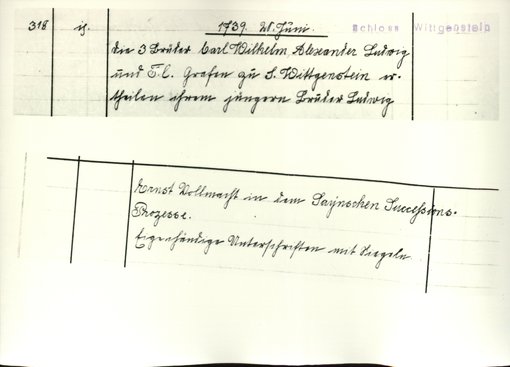 318 is. 1739. 28. Juni. Schloss Wittgenstein
die 3 Brüder Carl Wilhelm, Alexander Ludwig
und F. C. Grafen zu S. Wittgenstein er-
theilen ihrem jüngern Bruder Ludwig
Ernst Vollmacht in dem Saynschen Successions-
Prozesse.
Eigenhändige Unterschriften mit Siegeln